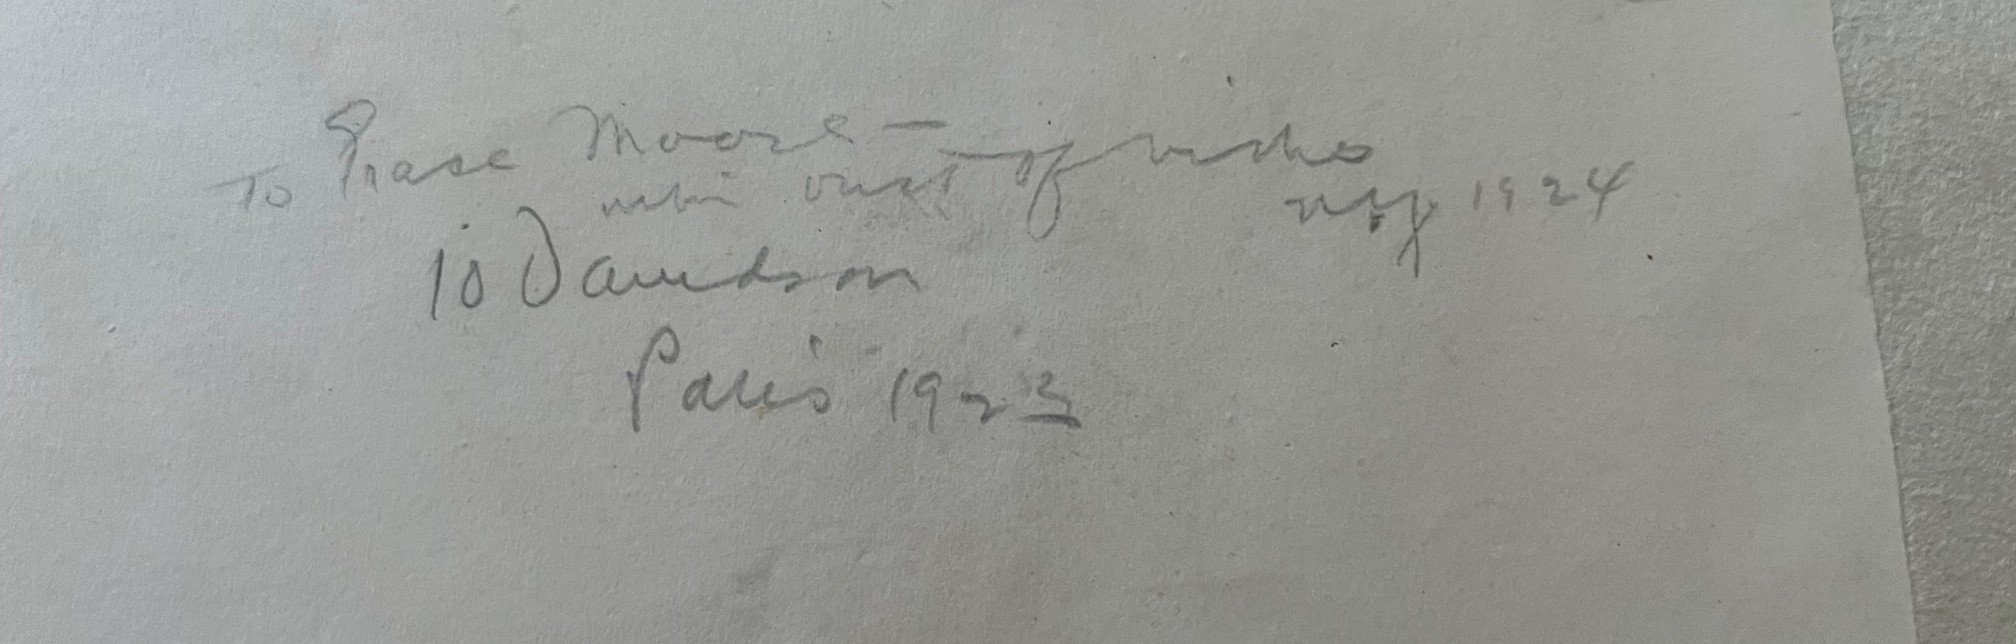 To Grace Moore —
with best of wishes
Jo Davidson
NY 1924
Paris 1923